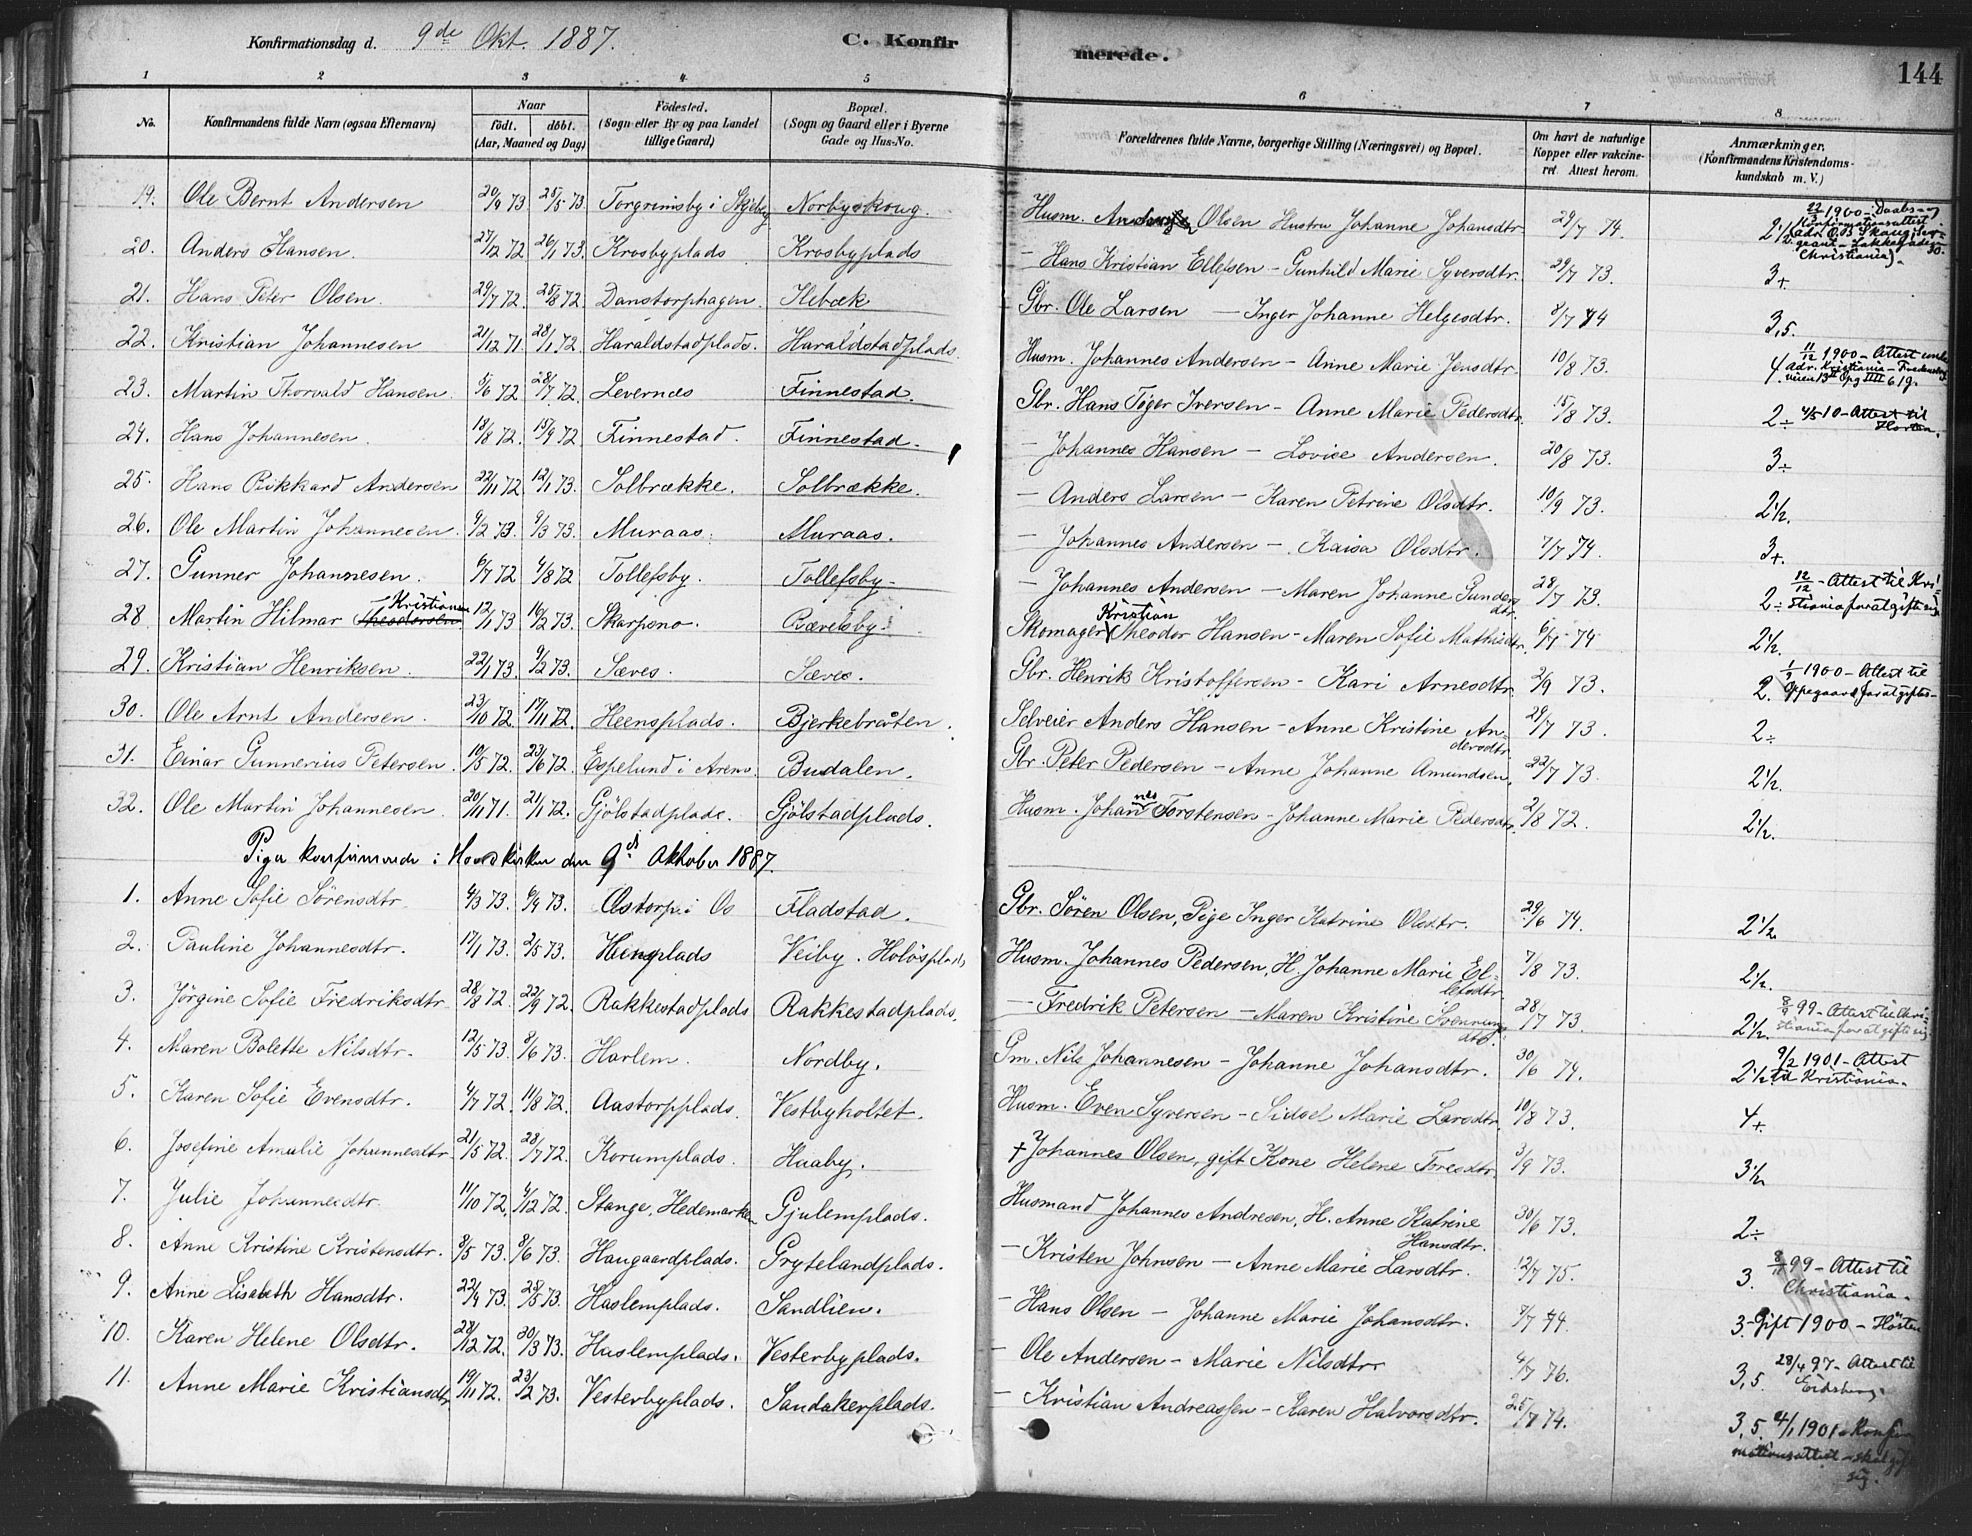 Konfirmationsdag d. 9de Okt. 1887. C. Konfirmerede. 144
1 2 3 4 5 6 7 8
No. Konfirmandens fulde Navn (ogsaa Efternavn) Naar födt. döbt. (Aar, Maaned og Dag) Födested. (Sogn eller By og paa Landet tillige Gaard) Bopæl. (Sogn og Gaard eller i Byerne Gade og Hus-No. Forældrenes fulde Navne, borgerlige Stilling (Næringsvei) og Bopæl. Om havt de naturlige Kopper eller vakcineret Attest herom. Anmærkninger. (Konfirmandens Kristendomskundskab m. V.)
19. Ole Bernt Andersen 20/4 73 25/5 73. Torgrimsby i Skjeberg Norbyskoug. Husm. Olsen Hustru Johanne Johansdtr 29/7 74. 2 1/2 22/11 1900 - Daabs- og Konfirmationsattest adr. O.B. Skaug, Sergeant - Lakkegaden 30. Christiania).
20. Anders Hansen. 27/12 72 26/1 73. Krosbyplads Krosbyplads - Hans Kristian Ellefsen - Gunhild Marie Syversdtr. 29/7 73. 3+.
21. Hans Peter Olsen. 29/7 72. 25/8 72. Danstorphagen. Ilebæk Gbr. Ole Larsen - Inger Johanne Helgesdtr. 8/7 74 3,5.
22. Kristian Johannesen 21/12 71. 28/1 72. Haraldstadplads. Haraldstadplads. Husm. Johannes Andersen - Anne Marie Jensdtr. 10/8 73. 4. 11/12 1900 - Attest adr. Kristiania - Fredensborgveien 13 Opg III 6 19.
23. Martin Thorvald Hansen. 5/6 72 28/7 72. Levernæs Finnestad. Gbr. Hans Tøger Iversen - Anne Marie Pedersdtr. 15/8 73. 2÷ 4/5 10 - Attest til Horten.
24. Hans Johannesen. 18/8 72. 15/9 72 Finnestad. Finnestad. - Johannes Hansen - Lovise Andersen. 20/8 73. 3÷
25. Hans Rikkard Andersen 22/11 72. 12/1 73. Solbrække. Solbrække. - Anders Larsen - Karen Petrine Olsdtr. 10/9 73. 2 1/2.
26. Ole Martin Johannesen 9/2 73. 9/3 73. Muraas. Muraas. - Johannes Andersen - Kaisa Olsdtr. 7/7 74. 3+.
27. Gunner Johannesen. 6/7 72 4/8 72 Tollefsby. Tollefsby. - Johannes Andersen - Maren Johanne Gundersdtr. 28/7 73. 2÷ 12/12 - Attest til Kristiania for at gifte sig
28 Martin Hilmar Theodorsen Kristiansen 12/1 73 16/2 73. Skarpsno. Rævelsby. Skomager Kristian Theodor Hansen - Maren Sofie Mathisdtr. 6/7 74 2 1/2.
29. Kristian Henriksen. 22/1 73. 9/2 73. Sæves. Sæves. Gbr. Henrik Kristoffersen - Kari Arnesdtr. 2/9 73. 2. 1/9 1900 - Attest til Oppegaard for at giftes -
30. Ole Arnt Andersen. 23/10 72. 17/11 72. Heensplads. Bjerkebraaten. Selveier Anders Hansen - Anne Kristine Andersdtr. 29/7 73. 2÷
31. Einar Gunnerius Petersen. 19/5 72. 23/6 72. Espelund i Arems. Budalen. Gbr. Peter Pedersen - Anne Johanne Amundsen. 22/7 73. 2 1/2.
32. Ole Martin Johannesen. 20/11 71. 21/1 72. Gjölstadplads. Gjölstadplads. Husm. Johannes Torstensen - Johanne Marie Pedersdtr. 2/8 72. 2 1/2.
Piger konfirmerede i Hovedkirken den 9de Oktober 1887.
1. Anne Sofie Sörensdtr. 4/3 73. 6/4 73. Astorp i Os Fladstad. Gbr. Sören Olsen, Pige Inger Katrine Olsdtr. 29/6 74. 2 1/2
2. Pauline Johannesdtr. 17/1 73. 2/5 73. Heenplads Veiby. Holösplads Husm. Johannes Pedersen, H. Johanne Marie Ellefsdtr. 7/8 73. 2 1/2.
3. Jörgine Sofie Fredriksdtr 28/8 72. 22/9 72. Rakkestadplads Rakkestadplads. - Fredrik Petersen - Maren Kristine Svenningsdtr. 28/7 73. 2 1/2. 8/9 99 - Attest til Christiania for at gifte sig
4. Maren Bolette Nilsdtr. 12/5 73. 8/6 73. Harlem. Nordby. Gm. Nils Johannesen - Johanne Johansdtr. 30/6 74. 2 1/2 9/2 1901 - Attest til Kristiania.
5. Karen Sofie Evensdtr. 4/7 72. 11/8 72. Aastorpplads. Vestbyholtet. Husm. Even Syversen - Sidsel Marie Larsdtr. 10/8 73. 4+.
6. Josefine Amalie Johannesdtr 21/5 72. 28/7 72. Korumplads. Haaby. + Johannes Olsen, gift Kone Helene Toresdtr. 3/9 73. 3 1/2
7. Julie Johannesdtr. 11/10 72. 4/12 72. Stange, Hedemarken Gjulemplads. Husmand Johannes Andresen, H. Anne Katrine Hansdtr. 30/6 73. 2÷
8. Anne Kristine Kristensdtr. 8/5 73. 8/6 73. Haugaardplads. Grytelandplads. - Kristen Johnsen - Anne Marie Larsdtr. 12/7 75. 3. 8/11 99 - Attest til Christiania.
9. Anne Lisabeth Hansdtr. 22/4 73. 25/5 73. Haslemplads. Sandlien. - Hans Olsen - Johanne Marie Johansdtr. 7/7 74. 3. Gift 1900 - Horten
10. Karen Helene Olsdtr. 28/12 72. 30/3 73. Haslemplads. Vesterbyplads. - Ole Andersen - Marie Nilsdtr 4/7 76. 3,5. 28/4 97 - Attest til Eidsberg.
11. Anne Marie Kristiansdtr 19/11 72. 23/2 73. Vesterbyplads. Sandakerplads. - Kristian Andreassen - Karen Halvorsdtr. 25/7 74. 3,5. 4/1 1901 - Konfirmationsattest - skal gifte sig.